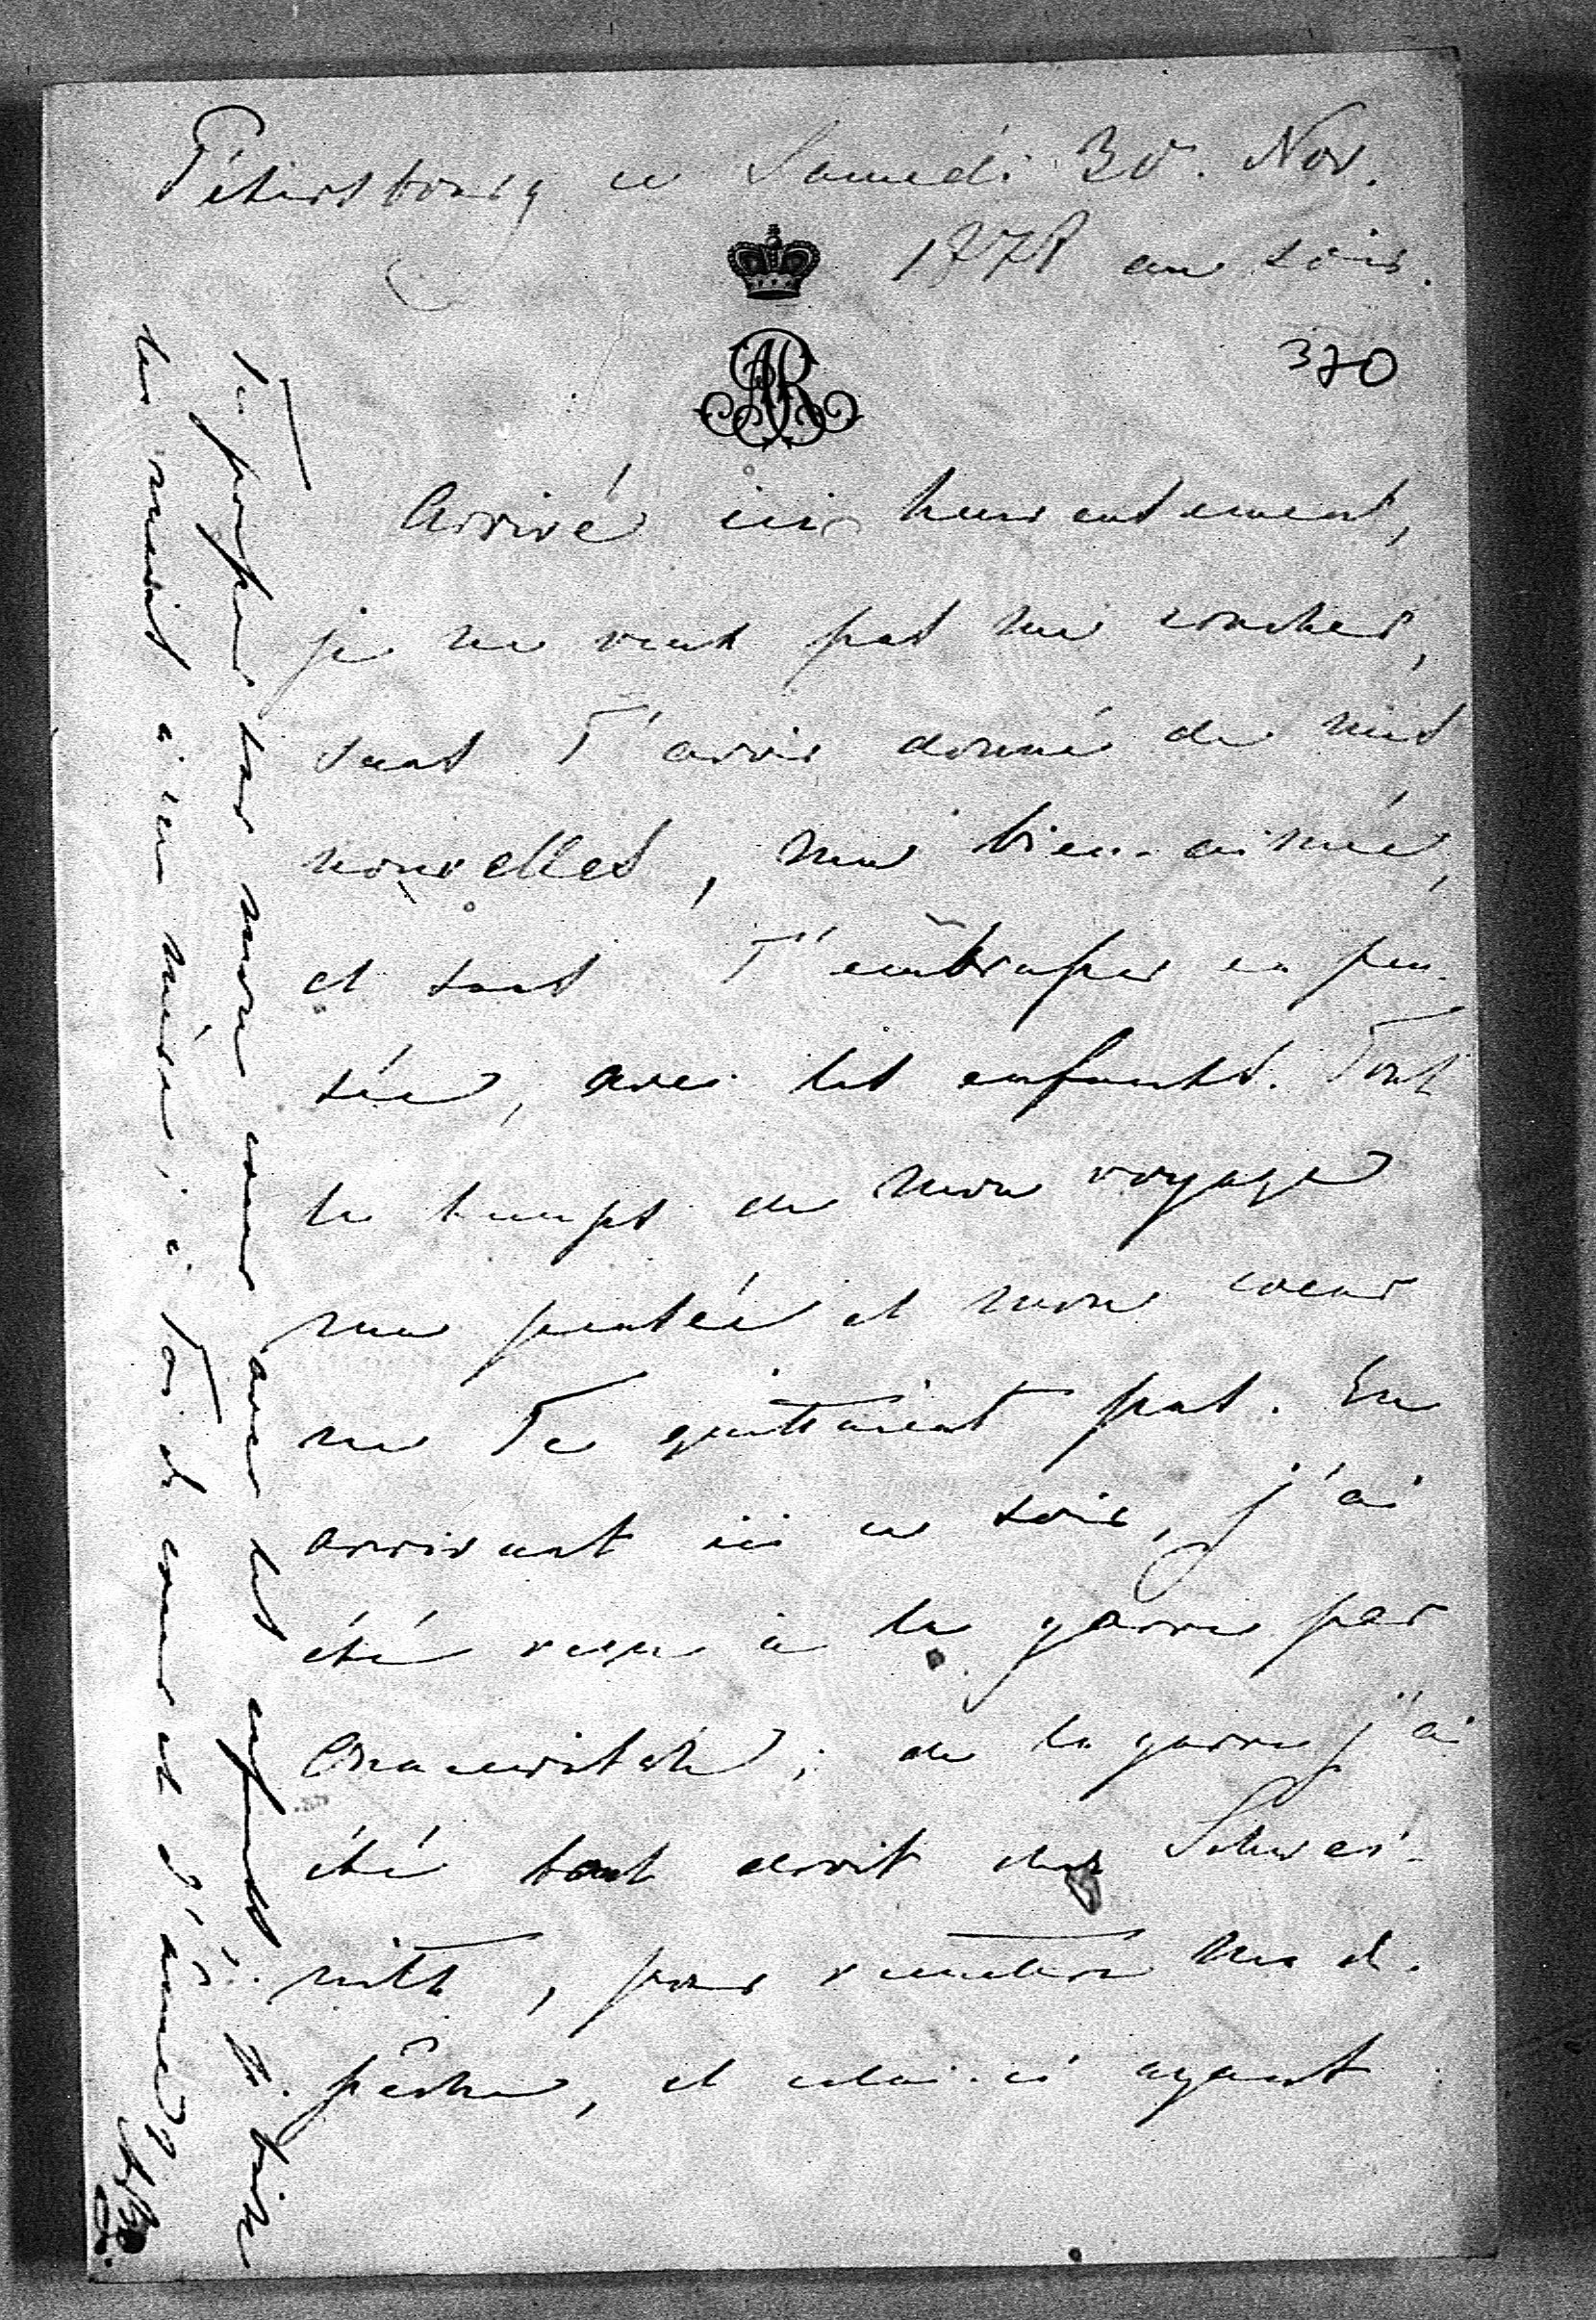 Pétersbourg ce Samedi 30. Nov.
1878 au soir.
370
Arrivé ici heureusement,
je ne veux pas me coucher,
sans T'avoir donné de mes
nouvelles, ma bien-aimée,
et sans T'embrasser en pen-
sée, avec les enfants. Tout
le temps de mon voyage
ma pensée et mon coeur
ne Te quittaient pas. En
arrivant ici ce soir, j'ai
été reçu à la garre par
; de la garre j'ai
été tout droit chez
pour remettre ma dé-
pêche, et celui-ci ayant
Te presser sur mon coeur avec les enfants!
les mains à ma mère; à Toi de coeur et d'âme